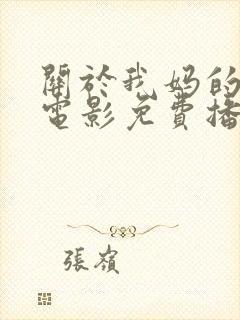 關於我媽的
電影免費播
張嶺